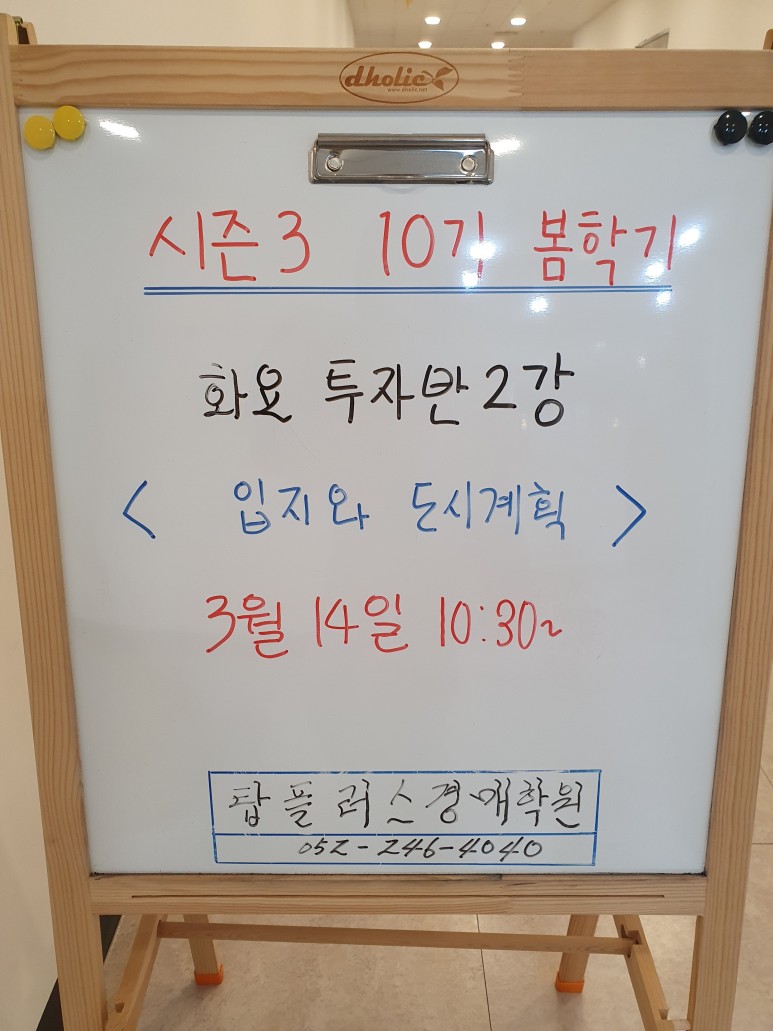 dholic
www.dholic.net
시즌3 10기 봄학기
화요 투자반 2강
< 입지와 도시계획 >
3월 14일 10:30~
탑플러스경매학원
052-246-4040